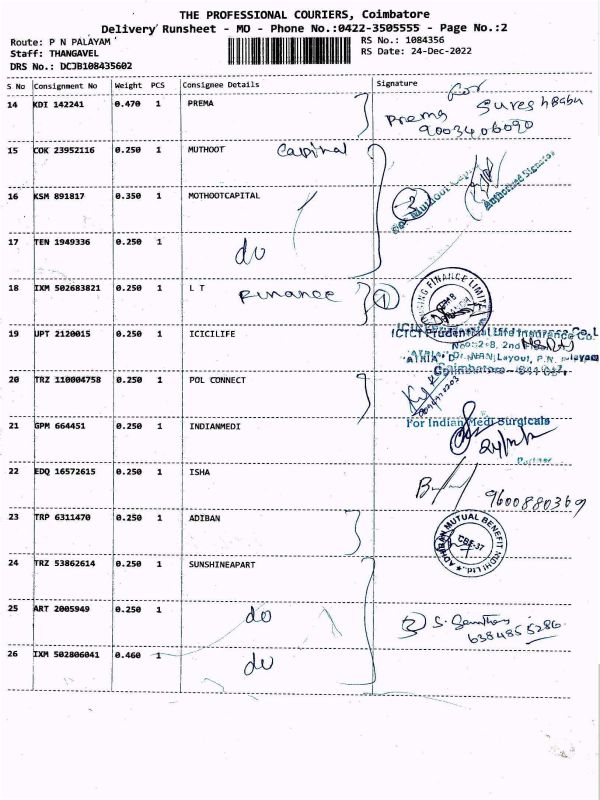 THE PROFESSIONAL COURIERS, Coimbatore
Delivery Runsheet - MD - Phone No.:0422-3505555 - Page No.:2
Route: P N PALAYAM
RS No.: 1084356
Staff: THANGAVEL
RS Date: 24-Dec-2022
DRS No.: DCJB108435602
S No Consignment No Weight PCS Consignee Details Signature
14 KDI 142241 0.470 1 PREMA
for
Prema Sureshbabu
9003406090
15 COK 23952116 0.250 1 MUTHOOT Capital
Authorised Signatory
16 KSM 891817 0.350 1 MOTHOOTCAPITAL
17 TEN 1949336 0.250 1
do
18 IXM 502683821 0.250 1 L T Finance 1
FINANCE LIMITED
19 UPT 2120015 0.250 1 ICICILIFE
ICICI Prudential Life Insurance Co. L
2nd
Layout, P.N.
Coimbatore
20 TRZ 110004758 0.250 1 POL CONNECT
21 GPM 664451 0.250 1 INDIANMEDI
For Indian Medi Surgicals
Partner
22 EDQ 16572615 0.250 1 ISHA
9600880369
23 TRP 6311470 0.250 1 ADIBAN
MUTUAL BENEFIT NIDHI LTD.
CBE-37
24 TRZ 53862614 0.250 1 SUNSHINEAPART
25 ART 2005949 0.250 1
do
S.
6384855286
26 IXM 502806041 0.460 1
do